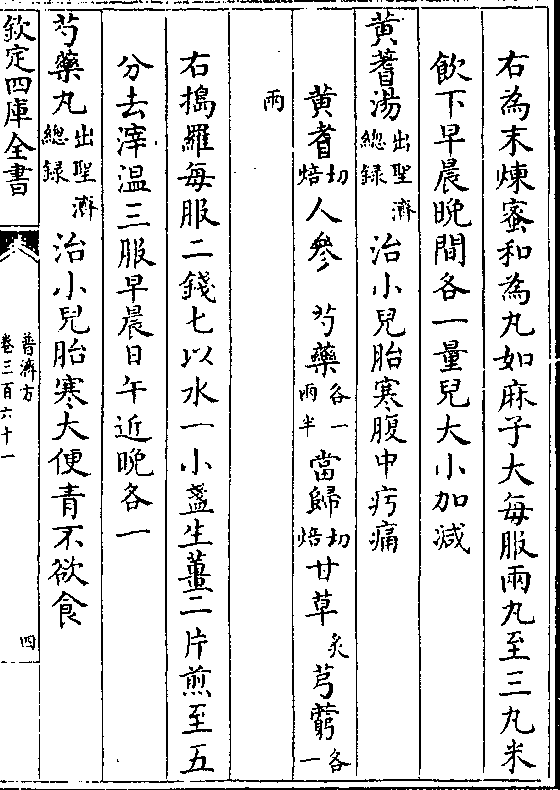 右為末煉蜜和為丸如麻子大每服兩丸至三丸米
飲下早晨晚間各一量兒大小加減
黄蓍湯出聖濟總録 治小兒胎寒腹中疞痛
黄耆切焙 人參 芍藥各一兩半 當歸切焙 甘草炙 芎藭各一
兩
右搗羅每服二錢七以水一小盞生薑二片煎至五
分去滓温三服早晨日午近晚各一
芍藥丸出聖濟總録 治小兒胎寒大便青不欲食
欽定四庫全書
普濟方
卷三百六十一
四